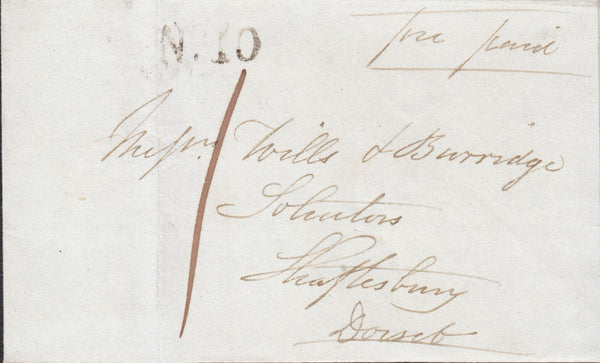 N. 10
pre paid
Messrs Wills & Burridge
Solicitors
Shaftesbury
Dorset